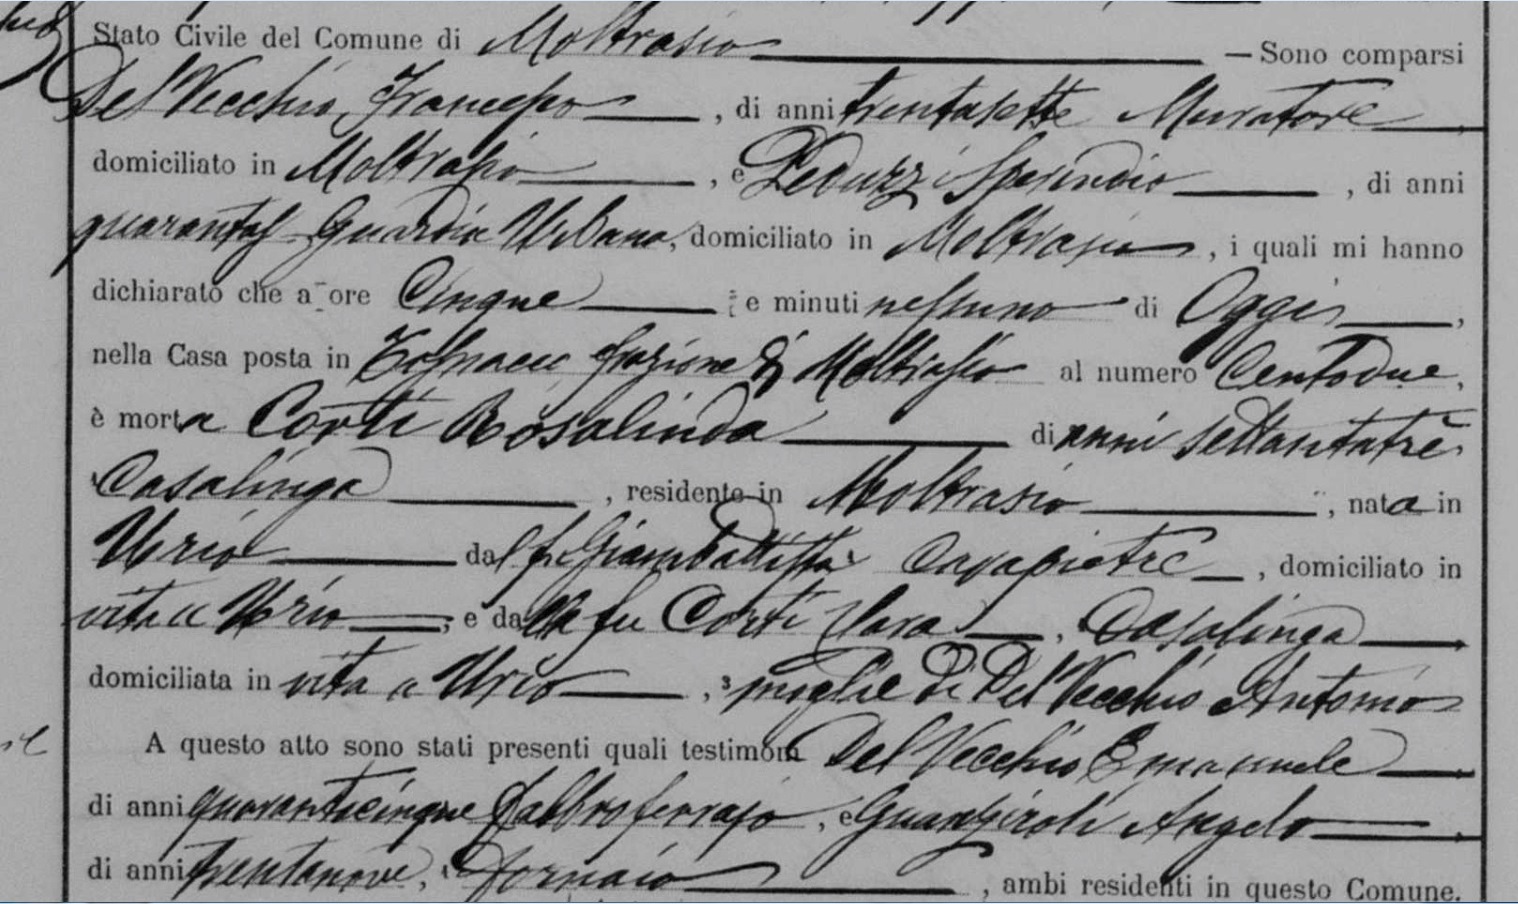 Stato Civile del Comune di Moltrasio — Sono comparsi
Del Vecchio Francesco, di anni trentasette Muratore,
domiciliato in Moltrasio, e Peduzzi Sperindio, di anni
Guardia Urbana, domiciliato in Moltrasio, i quali mi hanno
dichiarato che a ore Cinque e minuti nessuno di Oggi,
nella Casa posta in frazione di Moltrasio al numero Centodue,
è morta Corti Rosalinda di anni settantatrè
Casalinga, residente in Moltrasio, nata in
Urio dal fu Giambattista Casapietre, domiciliato in
vita a Urio, e dalla fu Corti Clara, Casalinga
domiciliata in vita a Urio, moglie di Del Vecchio Antonio
A questo atto sono stati presenti quali testimoni Del Vecchio Emanuele
di anni quaranticinque Fabbroferrajo, e Guanziroli Angelo
di anni trentanove, Fornaio, ambi residenti in questo Comune.
il